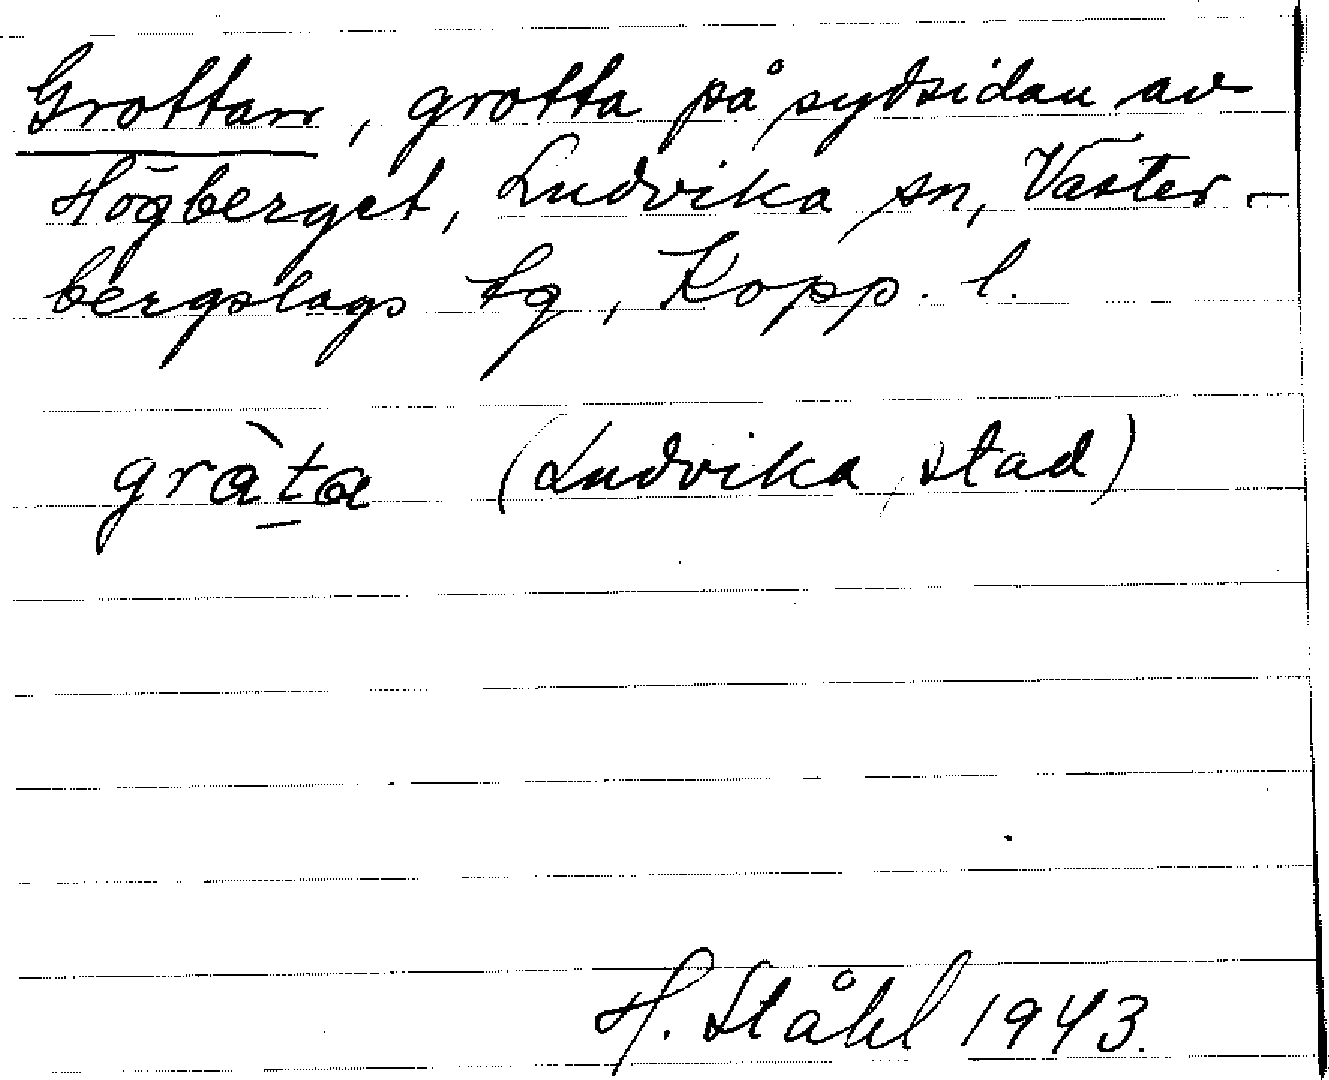 Grottan, grotta på sydsidan av
Högberget, Ludvika sn, Väster-
bergslags tg, Kopp. l.
gràta (Ludvika, stad)
H. Ståhl 1943.